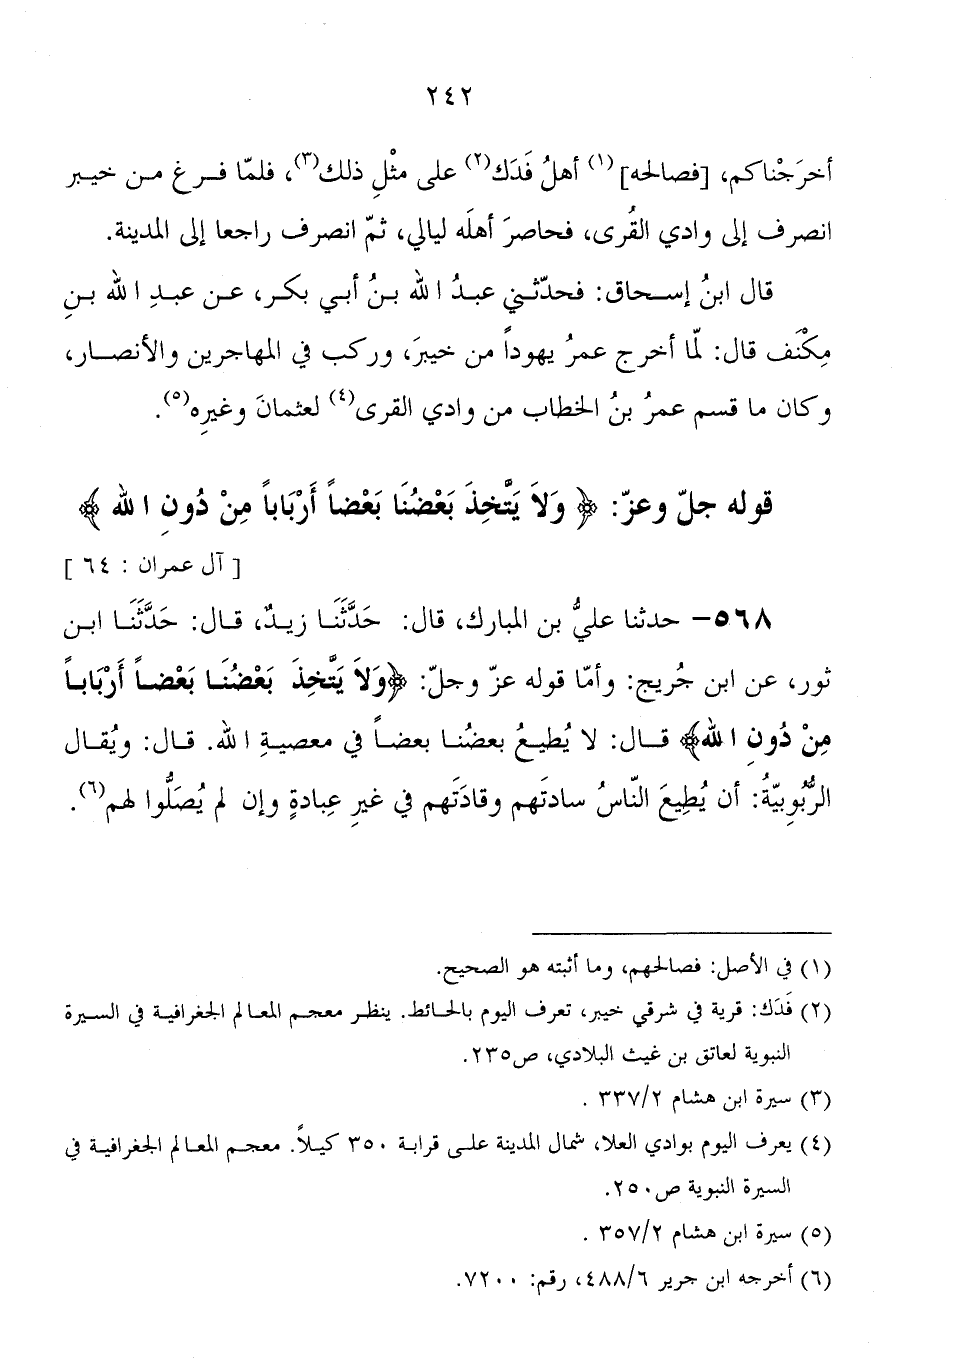 ٢٤٢
أخرَجْناكم، [فصالحه] (١) أهلُ فَدَك(٢) على مثْلِ ذلك(٣)، فلمّا فـرغ مـن خيـبر
انصرف إلى وادي القُرى، فحاصرَ أهلَه ليالي، ثمّ انصرف راجعا إلى المدينة.
قال ابنُ إسـحاق: فحدّثـني عبـدُ الله بـنُ أبي بكر، عـن عبـدِ الله بـنِ
مِكْنَف قال: لمّا أخرج عمرُ يهوداً من خيبرَ، وركب في المهاجرين والأنصـار،
وكان ما قسم عمرُ بنُ الخطاب من وادي القرى(٤) لعثمانَ وغيرِه(٥).
قوله جلّ وعزّ: ﴿ وَلاَ يَتَّخِذَ بَعْضُنَا بَعْضاً أَرْبَاباً مِنْ دُونِ الله ﴾
[ آل عمران : ٦٤ ]
٥٦٨- حدثنا عليُّ بن المبارك، قال: حَدَّثَنَـا زيـدٌ، قـال: حَدَّثَنَـا ابـن
ثور، عن ابن جُريج: وأمّا قوله عزّ وجلّ: ﴿وَلاَ يَتَّخِذَ بَعْضُنَـا بَعْضـاً أَرْبَابـاً
مِنْ دُونِ الله﴾ قـال: لا يُطيـعُ بعضُنـا بعضـاً في معصيـةِ الله. قـال: ويُقـال
الرُّبُوبِيّةُ: أن يُطِيعَ النّاسُ سادتَهم وقادَتَهم في غيرِ عِبادةٍ وإن لم يُصَلُّوا لهم(٦).
(١) في الأصل: فصالحهم، وما أثبته هو الصحيح.
(٢) فَدَك: قرية في شرقي خيبر، تعرف اليوم بالحـائط. ينظـر معجـم المعـالم الجغرافيـة في السـيرة
النبوية لعاتق بن غيث البلادي، ص٢٣٥.
(٣) سيرة ابن هشام ٣٣٧/٢ .
(٤) يعرف اليوم بوادي العلا، شمال المدينة علـى قرابـة ٣٥٠ كيـلاً. معجـم المعـالم الجغرافيـة في
السيرة النبوية ص٢٥٠.
(٥) سيرة ابن هشام ٣٥٧/٢ .
(٦) أخرجه ابن جرير ٤٨٨/٦، رقم: ٧٢٠٠.